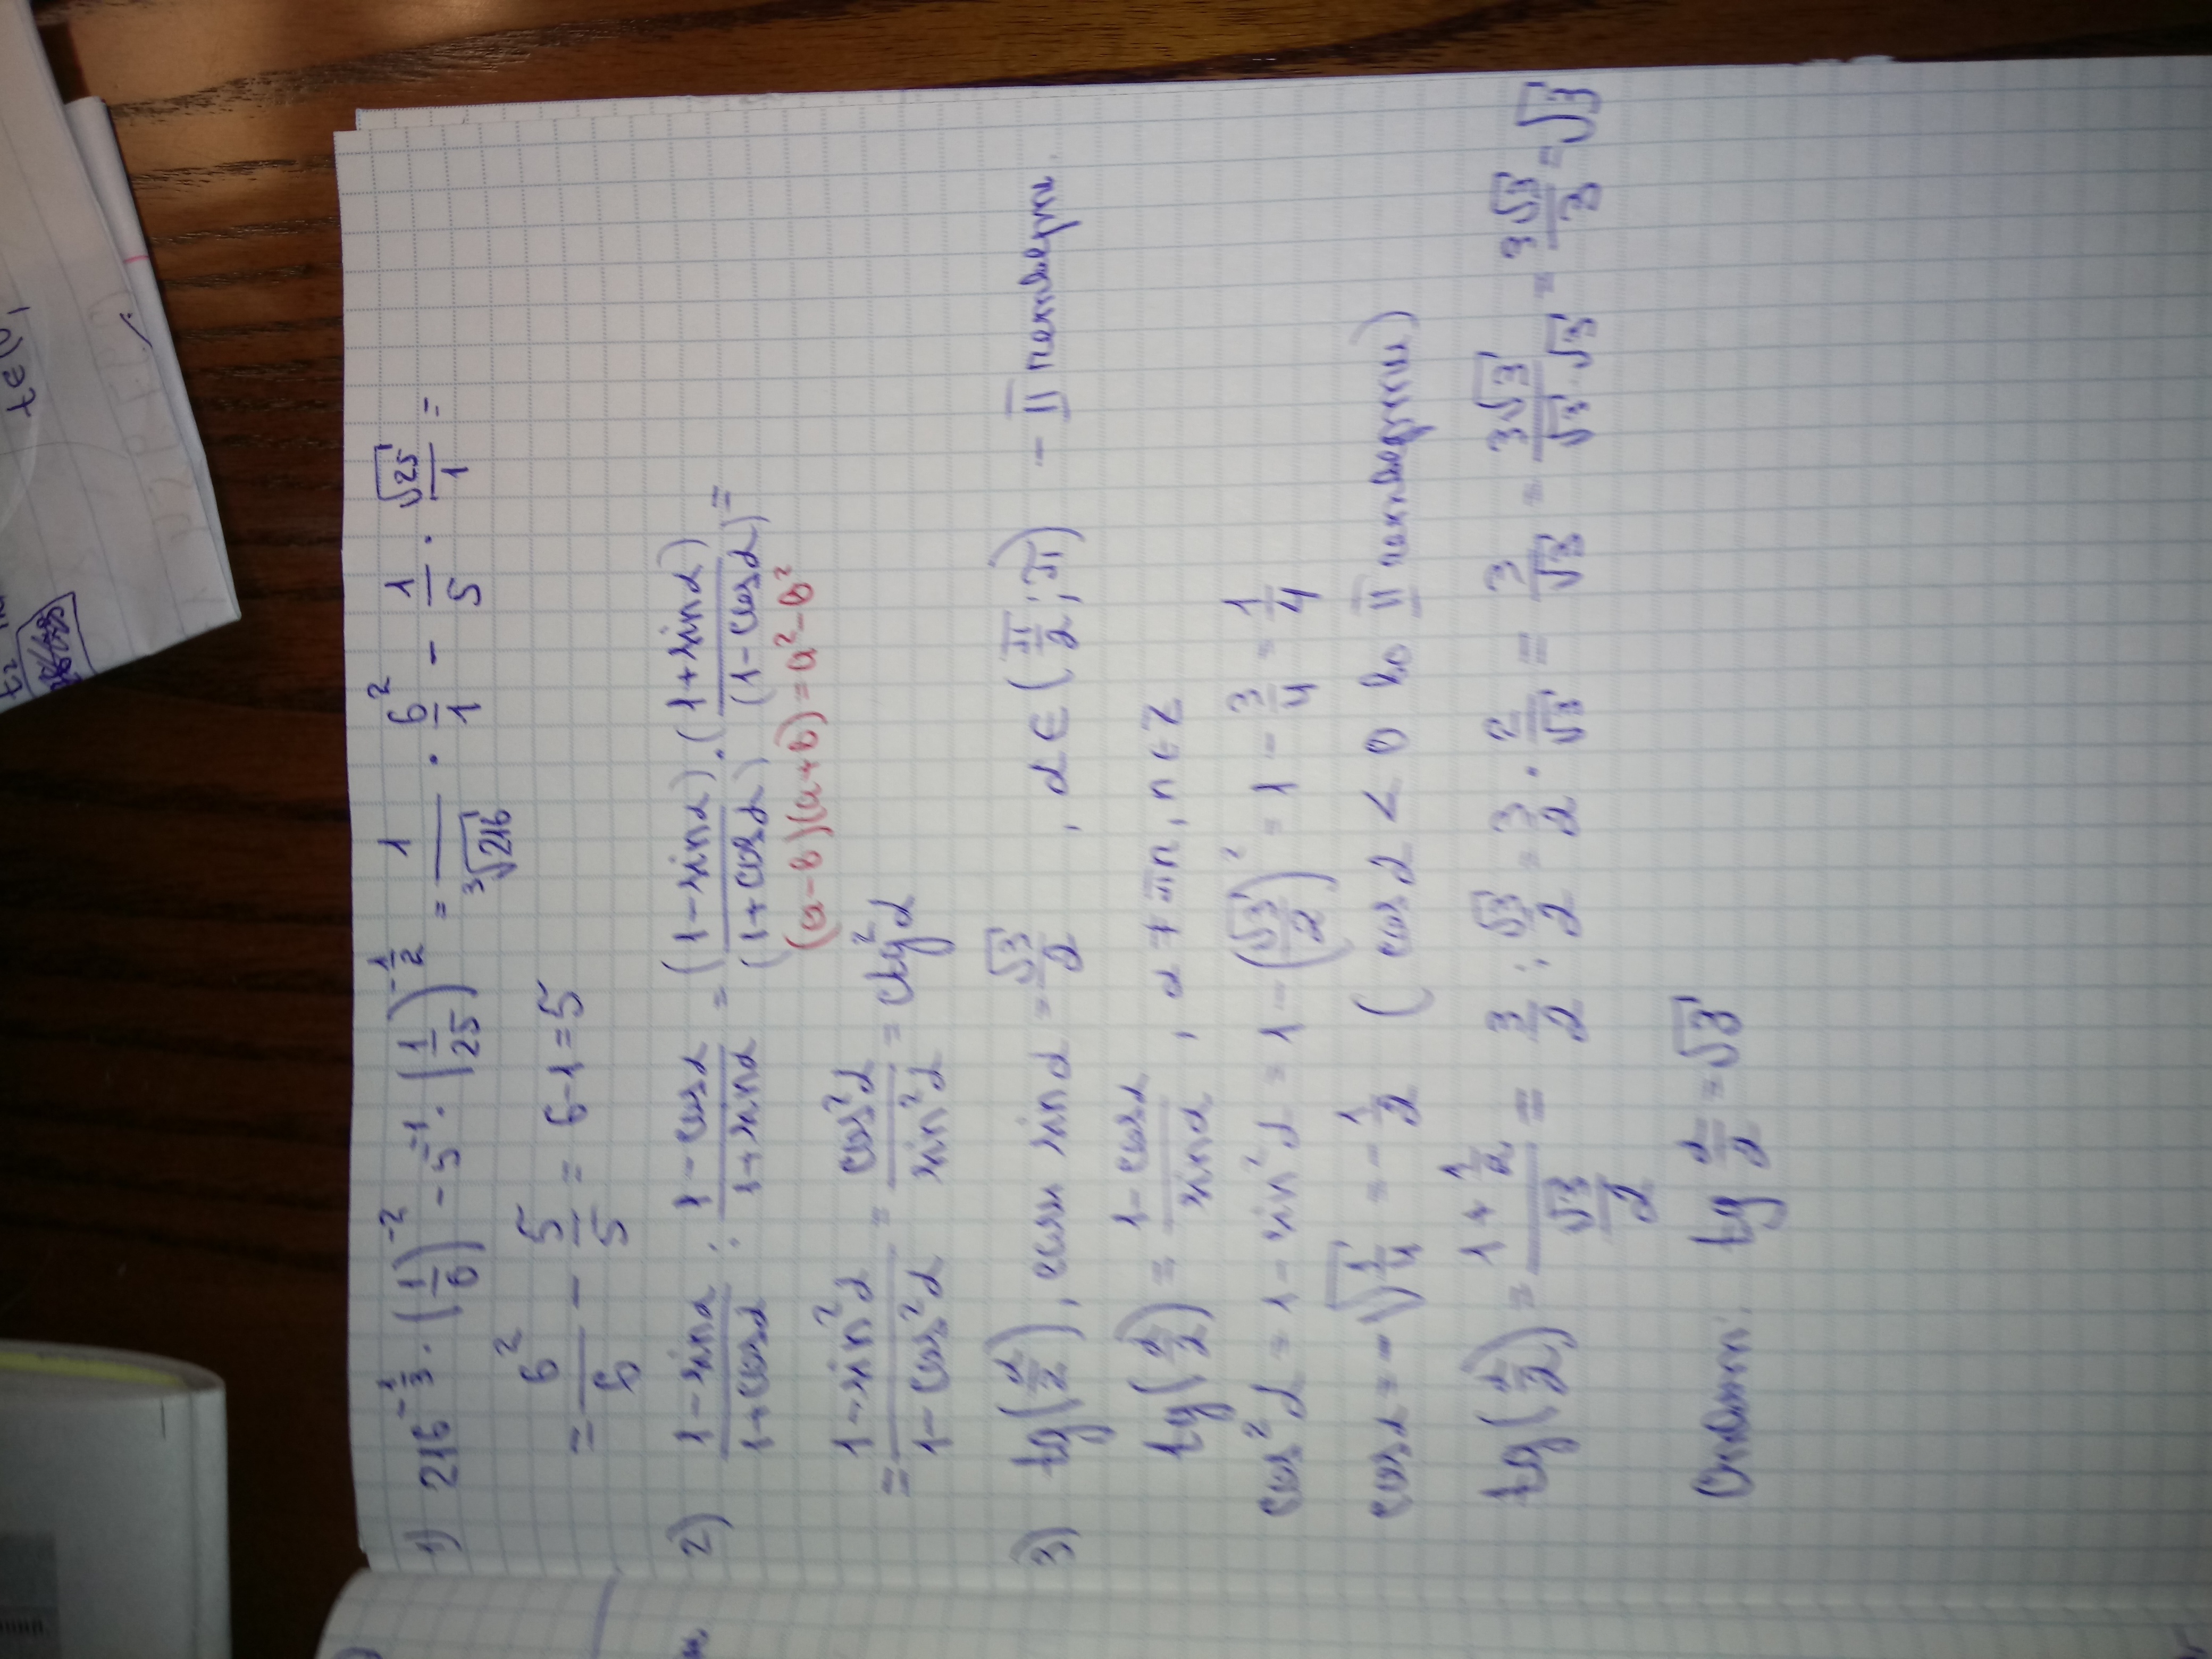 1) 216^(-1/3) · (1/6)^(-2) - 5^(-1) · (1/25)^(-1/2) = 1/∛216 · 6²/1 - 1/5 · √25/1 =
= 6²/6 - 5/5 = 6-1=5
2) (1-sinα)/(1+cosα) : (1-cosα)/(1+sinα) = (1-sinα)/(1+cosα) · (1+sinα)/(1-cosα) =
(a-b)(a+b)=a²-b²
= (1-sin²α)/(1-cos²α) = cos²α/sin²α = ctg²α
3) tg(α/2), если sinα = √3/2, α∈(π/2; π) - II четверти.
tg(α/2) = (1-cosα)/sinα, α ≠ πn, n∈Z
cos²α = 1-sin²α = 1-(√3/2)² = 1 - 3/4 = 1/4
cosα = -√(1/4) = -1/2 (cosα < 0 во II четверти)
tg(α/2) = (1+1/2)/(√3/2) = 3/2 : √3/2 = 3/2 · 2/√3 = 3/√3 = 3√3/(√3·√3) = 3√3/3 = √3
Ответ: tg α/2 = √3
t∈(